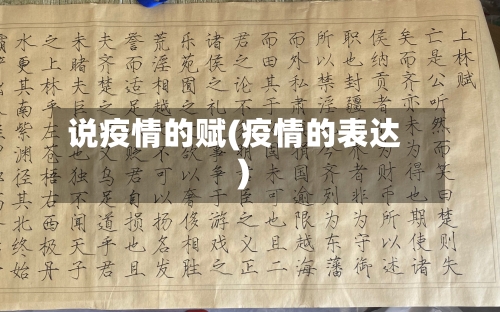 说疫情的赋(疫情的表达
)
上林赋
亡是公听然笑曰楚则失
矣而齐亦未为得也期使诸
侯纳贡者为财币所以述
职也封疆者非为守御
所以禁淫今齐列为东藩
而外私肃捐国逾限越海
而田其于未可也且二
君之论不臣之义正
诸侯之礼争于游戏之
乐苑囿之欲以奢侈相胜
荒淫相越不可以扬名发
誉而适足贬君自损也且
夫齐楚之又乌足道乎君
未睹夫巨也独不闻天子
之上林乎左苍梧右西极丹
水更其南紫渊径其北终始